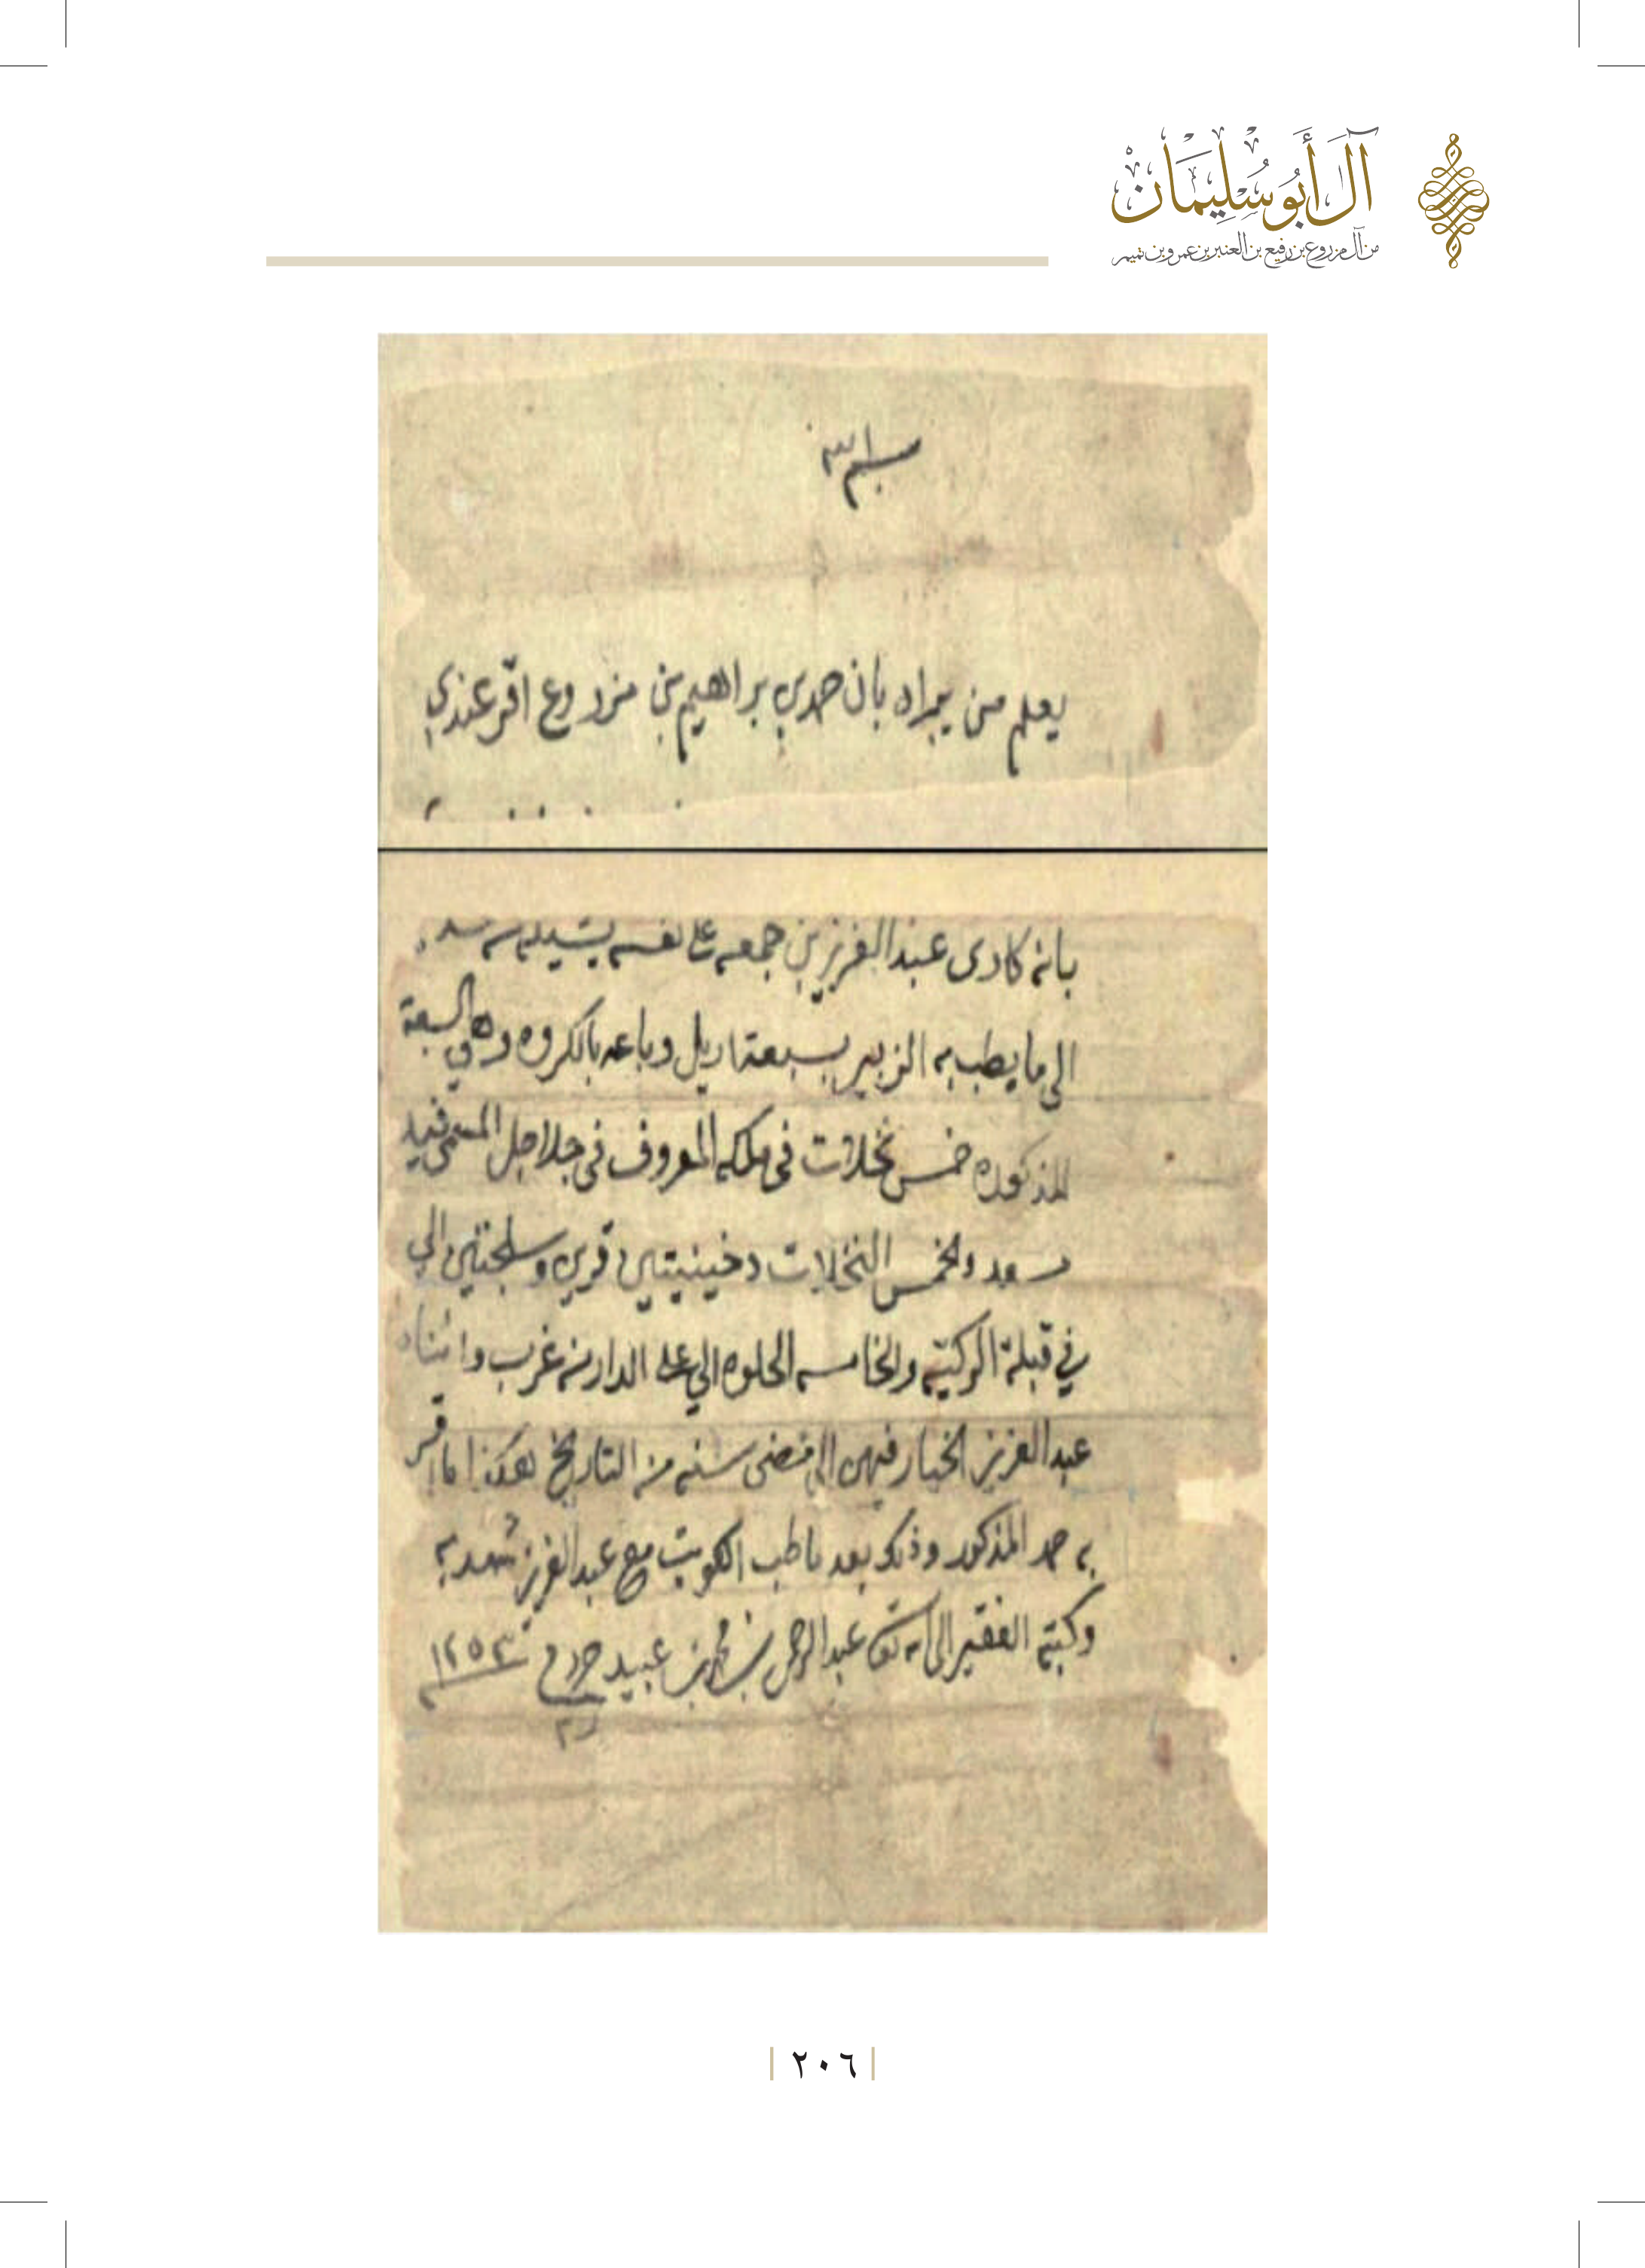 آل أَبُو سُلِيْمَان
من آل مزروع بن رفيع بن العنبر بن عمرو بن تميم
بسم الله
يعلم من يراه بان حمد بن براهيم بن مزروع اقر عندي
بانه كادى عبدالعزيز بن جمعه على نفسه
الى ما يطب به الزبير بسبعة اريل وباعه بالكروه وهي السبعة
المذكوره خمس نخلات في ملكه المعروف في جلاجل المسمى فيد
سعد والخمس النخلات دخينيتين قرين وسلجتين الي
في قبلة الركيه والخامسه الحلوه الي على الدار من غرب
عبدالعزيز الخيار فيهن الى مضى سنه من التاريخ هكذا ما اقر
به حمد المذكور وذلك بعد ما طب الكويت مع عبدالعزيز شهد به
وكتبه الفقير الى الله تعالى عبدالرحمن بن محمد بن عبيد حرر ١٢٥٣
٢٠٦